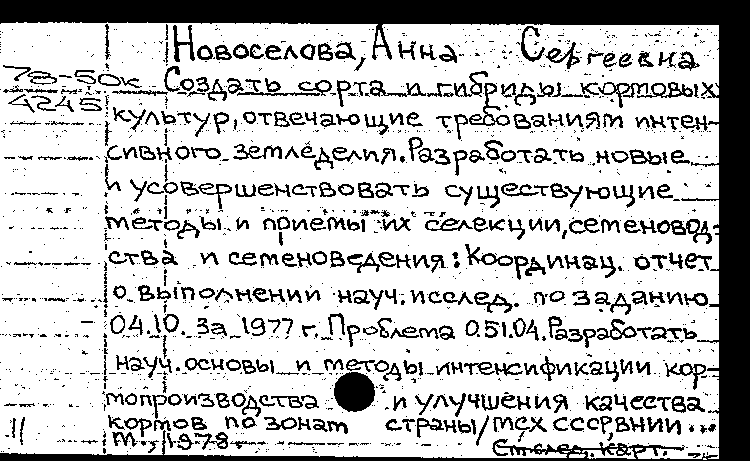 Новоселова, Анна Сергеевна
78-50к Создать сорта и гибриды кормовых
4245 культур, отвечающие требованиям интен-
сивного земледелия. Разработать новые
и усовершенствовать существующие
методы и приемы их селекции, семеновод-
ства и семеноведения: Координац. отчет
о выполнении науч. исслед. по заданию
04.10. за 1977 г. Проблема 0.51.04. Разработать
науч. основы и методы интенсификации кор-
мопроизводства и улучшения качества
11 кормов по зонам страны/ МСХ СССР, ВНИИ...
М., 1978.
См. след. карт.